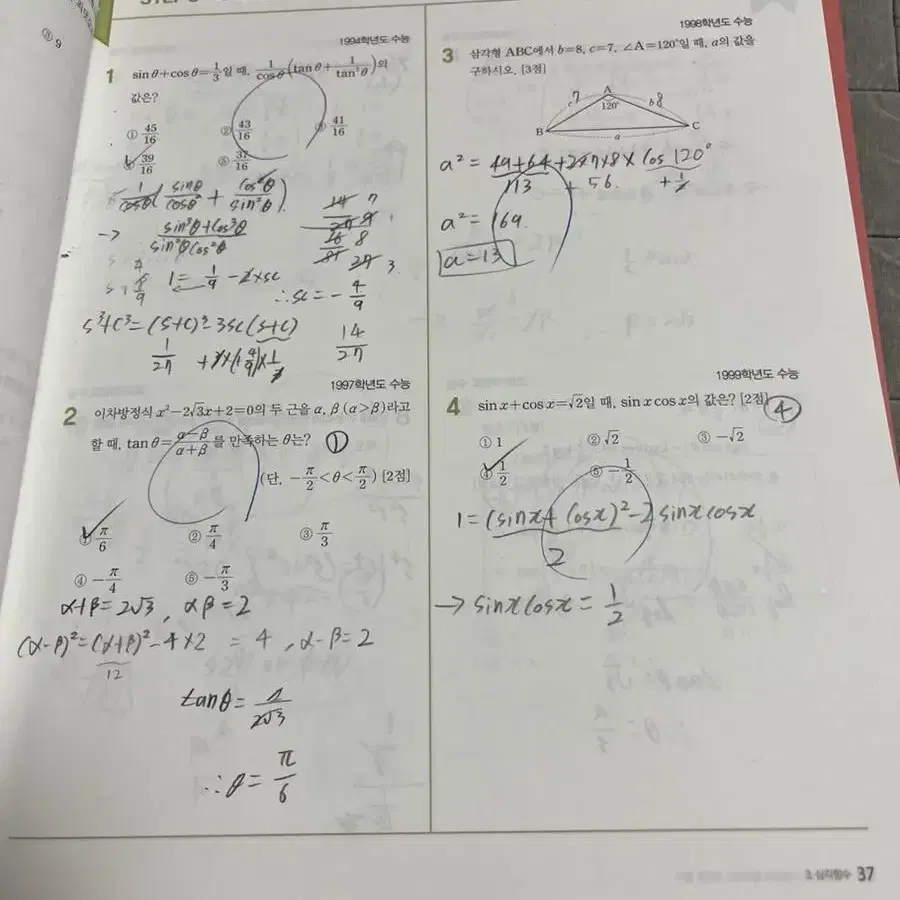 ③ 9
1994학년도 수능
1 sin θ+cos θ=1/3일 때, 1/cos θ(tan θ+1/tan²θ)의
값은?
① 45/16 ② 43/16 ③ 41/16
④ 39/16 ⑤ 37/16
1/cosθ(sinθ/cosθ + cos²θ/sin²θ)
→ sin³θ+cos³θ/sin²θcos²θ
1= 1/9 -2×sc
∴sc= -4/9
s³+c³=(s+c)³-3sc(s+c)
1/27
14/27
1997학년도 수능
2 이차방정식 x²-2√3x+2=0의 두 근을 α, β (α>β)라고
할 때, tan θ=α-β/α+β를 만족하는 θ는? ①
(단, -π/2<θ<π/2) [2점]
① π/6 ② π/4 ③ π/3
④ -π/4 ⑤ -π/3
α+β=2√3, αβ=2
(α-β)²=(α+β)²-4×2 = 4, α-β=2
12
tanθ= 2/2√3
∴θ= π/6
1998학년도 수능
3 삼각형 ABC에서 b=8, c=7, ∠A=120°일 때, a의 값을
구하시오. [3점]
A
c 7 120° b 8
B a C
a² = 49+64+2×7×8× cos 120°
113 + 56. +1/2
a² = 169.
a=13
1999학년도 수능
4 sin x+cos x=√2일 때, sin x cos x의 값은? [2점] ④
① 1 ② √2 ③ -√2
④ 1/2 ⑤ -1/2
1=(sinx+cosx)²-2sinxcosx
2
→ sinxcosx= 1/2
3. 삼각함수 37